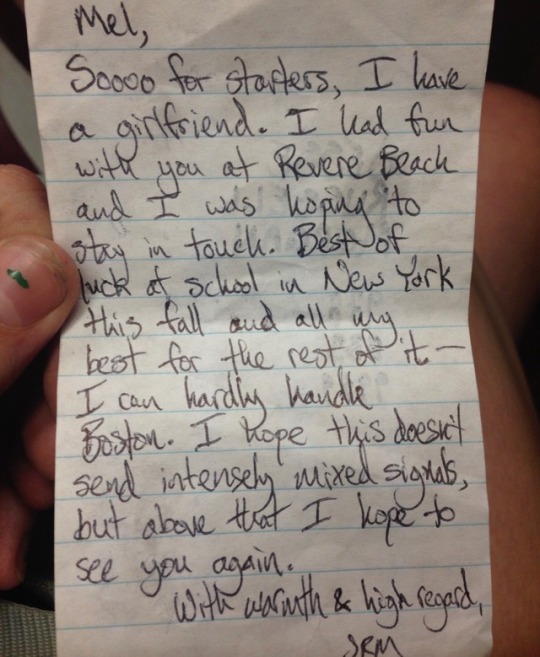 Mel,
Soooo for starters, I have
a girlfriend. I had fun
with you at Revere Beach
and I was hoping to
stay in touch. Best of
luck at school in New York
this fall and all my
best for the rest of it —
I can hardly handle
Boston. I hope this doesn't
send intensely mixed signals,
but above that I hope to
see you again.
With warmth & high regard,
JRM